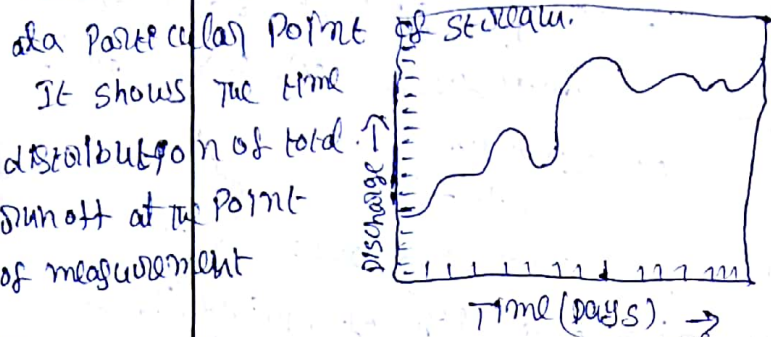 at a Particular Point of Stream.
It shows The time
distribution of total
runoff at the Point
of measurement
Discharge →
Time (Days). →